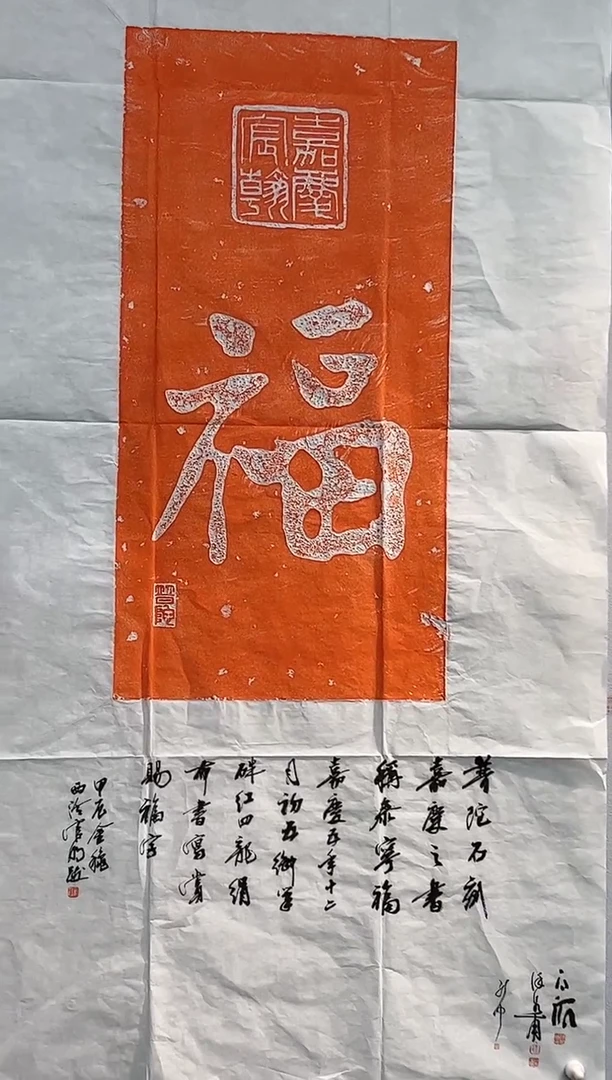 嘉慶
宸翰
福
普陀
普陀石刻
嘉慶之書
稱泰寧福
嘉慶五年十二
月初五御筆
硃红四龍绢
布書寫賞
賜福字
甲辰金龍
西泠